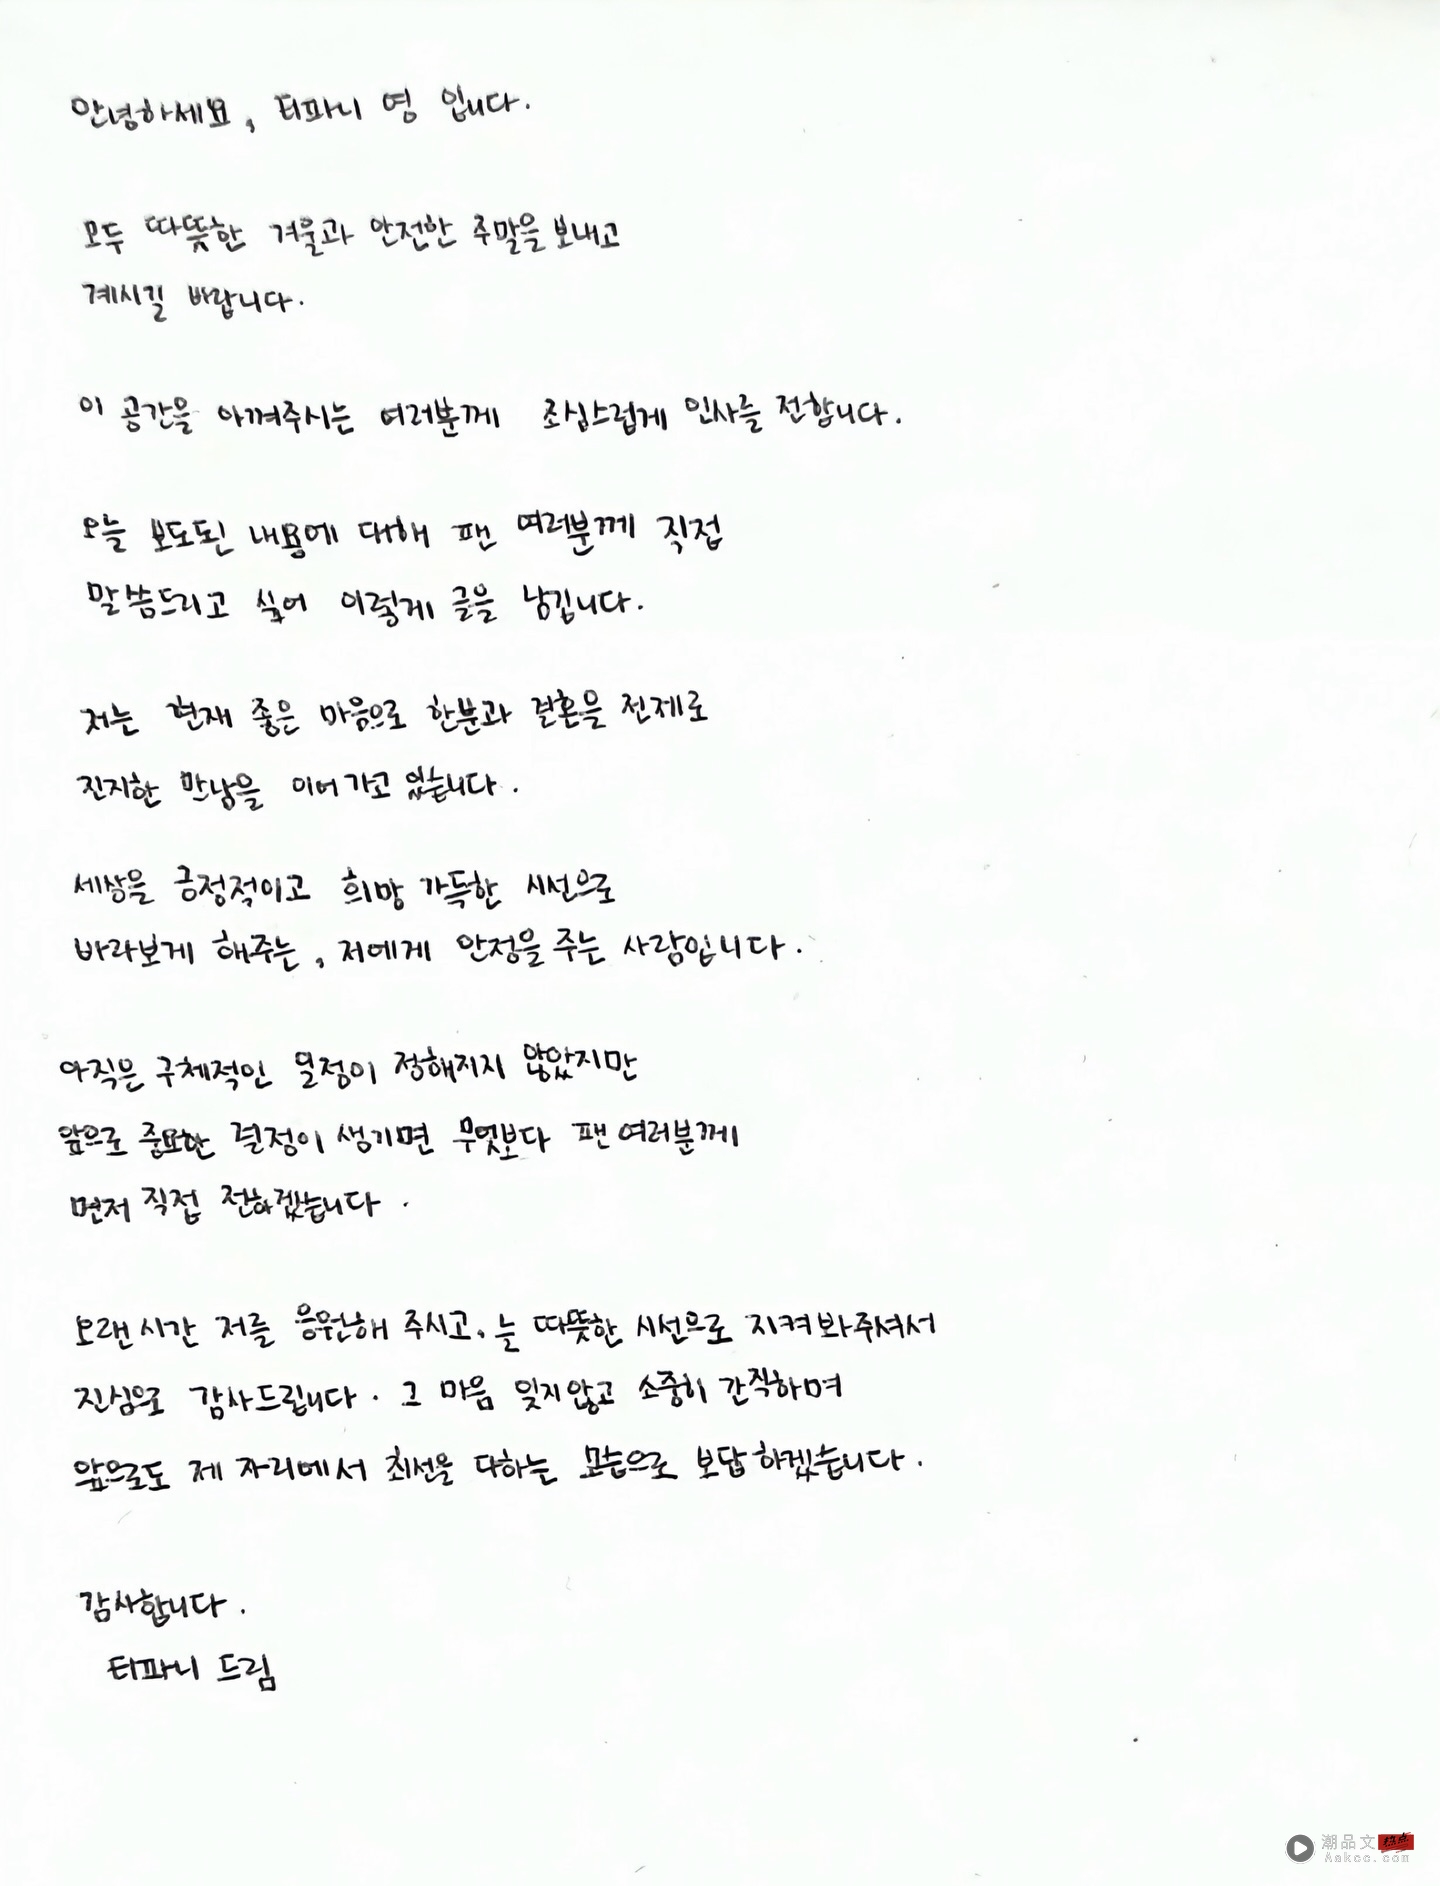 안녕하세요, 티파니 영 입니다.
모두 따뜻한 겨울과 안전한 주말을 보내고
계시길 바랍니다.
이 공간을 아껴주시는 여러분께 조심스럽게 인사를 전합니다.
오늘 보도된 내용에 대해 팬 여러분께 직접
말씀드리고 싶어 이렇게 글을 남깁니다.
저는 현재 좋은 마음으로 한분과 결혼을 전제로
진지한 만남을 이어가고 있습니다.
세상을 긍정적이고 희망 가득한 시선으로
바라보게 해주는, 저에게 안정을 주는 사람입니다.
아직은 구체적인 일정이 정해지지 않았지만
앞으로 중요한 결정이 생기면 무엇보다 팬 여러분께
먼저 직접 전하겠습니다.
오랜 시간 저를 응원해 주시고, 늘 따뜻한 시선으로 지켜봐주셔서
진심으로 감사드립니다. 그 마음 잊지않고 소중히 간직하며
앞으로도 제 자리에서 최선을 다하는 모습으로 보답하겠습니다.
감사합니다.
티파니 드림
潮品文 热点
Aakcc.com